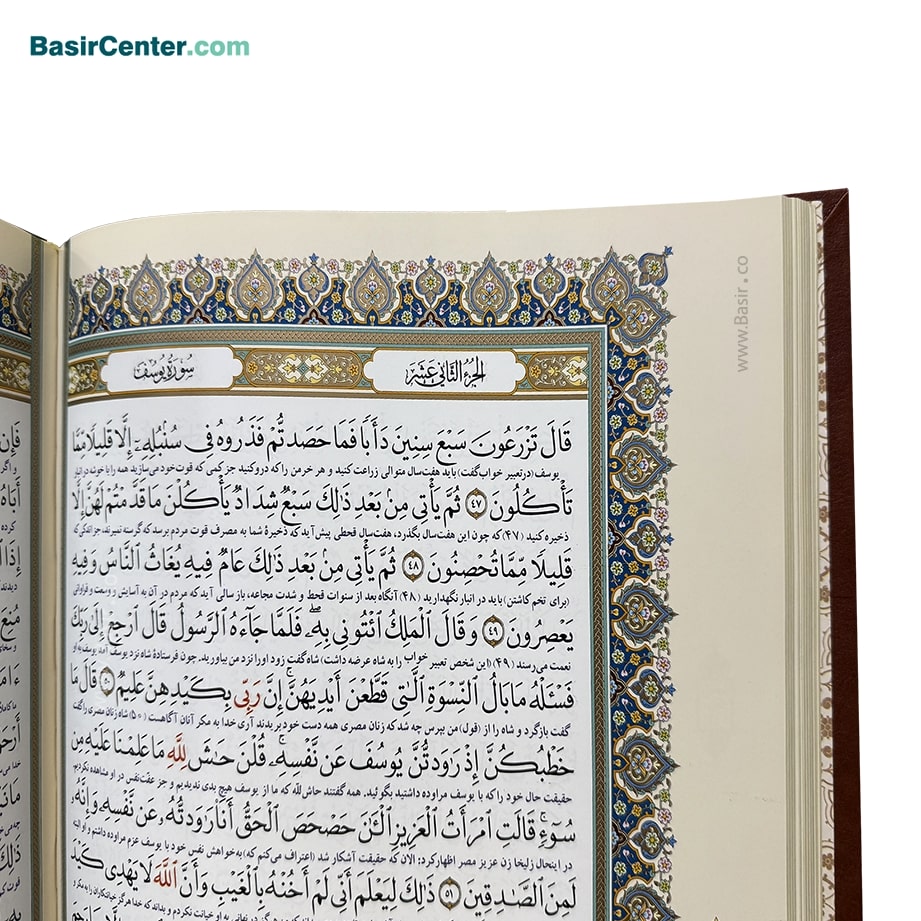 BasirCenter.com
www.Basir.co
سُورَةُ يُوسُفَ
الجُزءُ الثَّانِي عَشَر
قَالَ تَزْرَعُونَ سَبْعَ سِنِينَ دَأَبًا فَمَا حَصَدتُّمْ فَذَرُوهُ فِي سُنۢبُلِهِۦٓ إِلَّا قَلِيلًا مِّمَّا
یوسف (در تعبیر خواب گفت) باید هفت‌سال متوالی زراعت کنید و هر خرمن را که درو کنید جز کمی که قوت خود می‌سازید همه را با خوشه در انبار
تَأْكُلُونَ ٤٧ ثُمَّ يَأْتِي مِنۢ بَعْدِ ذَٰلِكَ سَبْعٌ شِدَادٌ يَأْكُلْنَ مَا قَدَّمْتُمْ لَهُنَّ إِلَّا
ذخیره کنید (۴۷) که چون این هفت‌سال بگذرد، هفت‌سال قحطی پیش آید که ذخیرهٔ شما به مصرف قوت مردم برسد که گرسنه نمیرند، جز اندکی که
قَلِيلًا مِّمَّا تُحْصِنُونَ ٤٨ ثُمَّ يَأْتِي مِنۢ بَعْدِ ذَٰلِكَ عَامٌ فِيهِ يُغَاثُ النَّاسُ وَفِيهِ
(برای تخم کاشتن) باید در انبار نگهدارید (۴۸) آنگاه بعد از سنوات قحط و شدت مجاعه، باز سالی آید که مردم در آن به آسایش و وسعت و فراوانی
يَعْصِرُونَ ٤٩ وَقَالَ الْمَلِكُ ائْتُونِي بِهِۦ ۖ فَلَمَّا جَآءَهُ الرَّسُولُ قَالَ ارْجِعْ إِلَىٰ رَبِّكَ
نعمت می‌رسند (۴۹) (این شخص تعبیر خواب را به شاه عرضه داشت) شاه گفت زود او را نزد من بیاورید. چون فرستادهٔ شاه نزد یوسف آمد یوسف به او
فَسْـَٔلْهُ مَا بَالُ النِّسْوَةِ الَّٰتِي قَطَّعْنَ أَيْدِيَهُنَّ ۚ إِنَّ رَبِّي بِكَيْدِهِنَّ عَلِيمٌ ٥٠ قَالَ مَا
گفت بازگرد و شاه را از (قول) من بپرس چه شد که زنان مصری همه دست خود بریدند آری خدا به مکر آنان آگاهست (۵۰) شاه زنان مصری را گفت
خَطْبُكُنَّ إِذْ رَٰوَدتُّنَّ يُوسُفَ عَن نَّفْسِهِۦ ۚ قُلْنَ حَٰشَ لِلَّهِ مَا عَلِمْنَا عَلَيْهِ مِن
حقیقت حال خود را که با یوسف مراوده داشتید بگوئید. همه گفتند حاش‌لله که ما از یوسف هیچ بدی ندیدیم و جز عفت‌نفس در او مشاهده نکردیم.
سُوٓءٍ ۚ قَالَتِ امْرَأَتُ الْعَزِيزِ الْـَٰٔنَ حَصْحَصَ الْحَقُّ أَنَا۠ رَٰوَدتُّهُۥ عَن نَّفْسِهِۦ وَإِنَّهُۥ
در اینحال زلیخا زن عزیز مصر اظهار کرد: الان که حقیقت آشکار شد (اعتراف می‌کنم که) به‌خواهش نفس خود با یوسف عزم مراوده داشتم و او البته
لَمِنَ الصَّٰدِقِينَ ٥١ ذَٰلِكَ لِيَعْلَمَ أَنِّي لَمْ أَخُنْهُ بِالْغَيْبِ وَأَنَّ اللَّهَ لَا يَهْدِي كَيْدَ